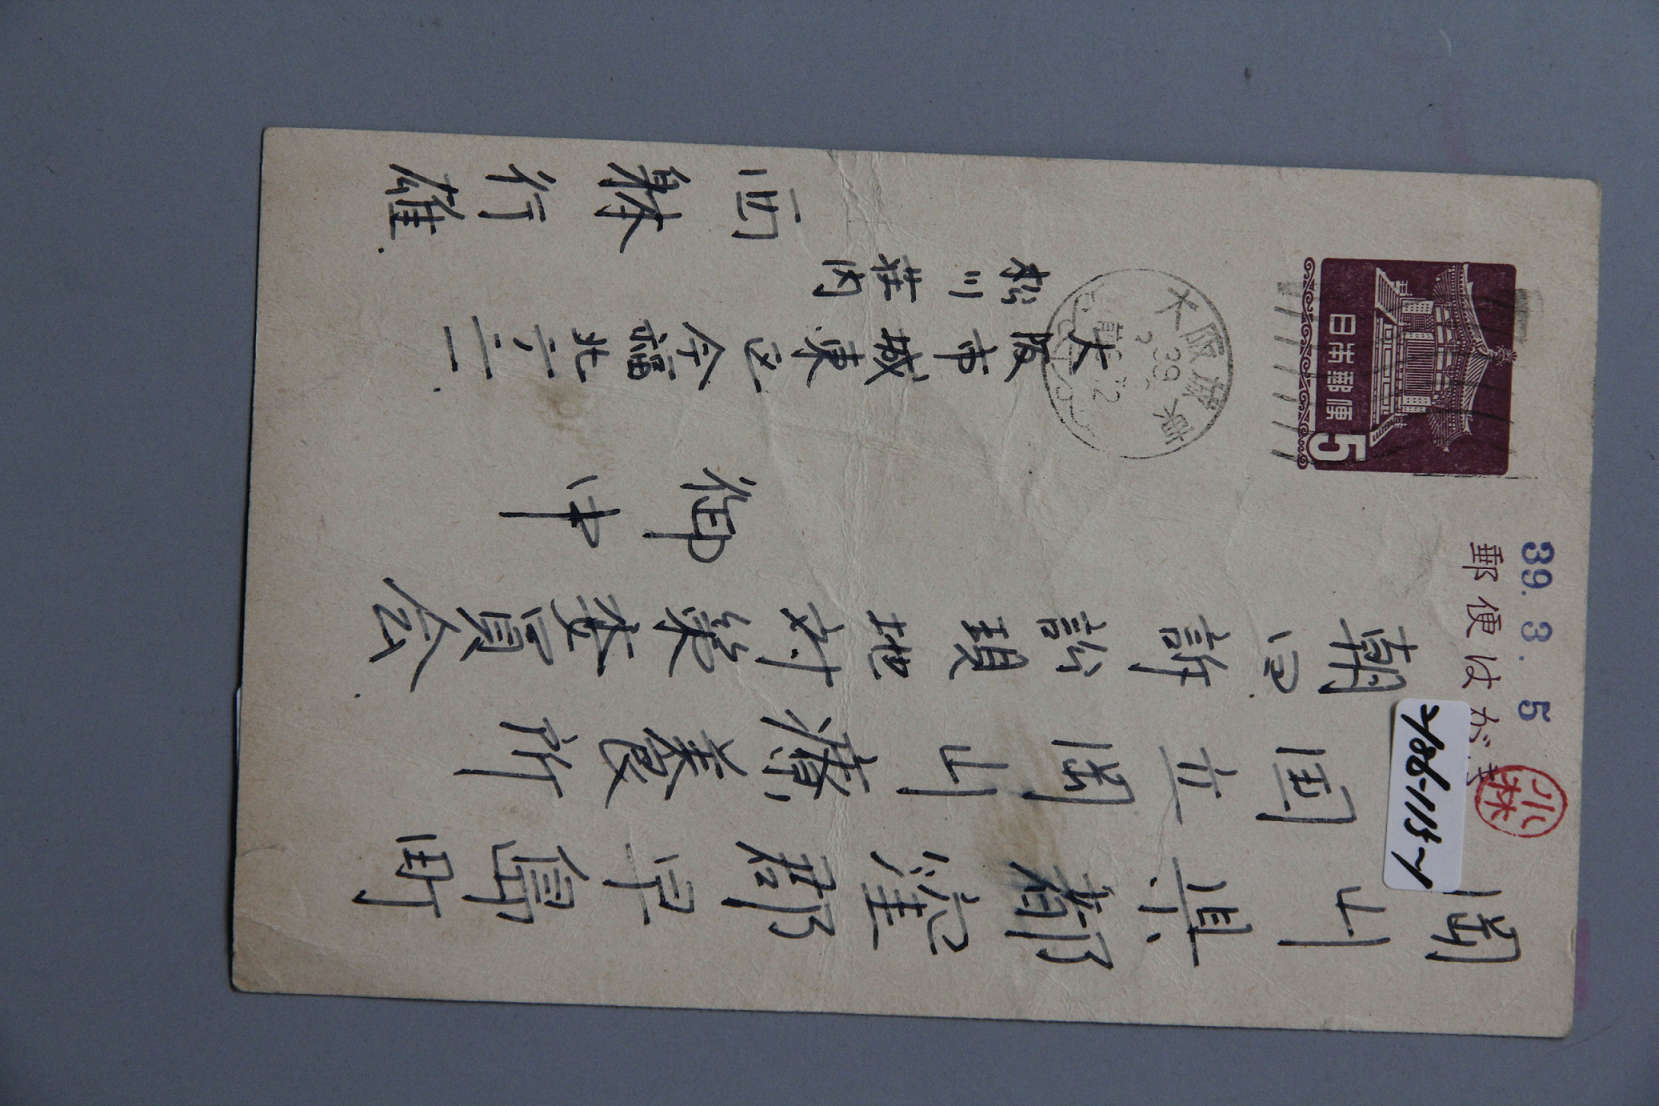 日本郵便
5
郵便はがき
39.3.5
小林
大阪城東
39
岡山県都窪郡早島町
国立岡山療養所
朝日訴訟現地対策委員会
御中
大阪市城東区今福北一ノ三一
松川荘内
西躰行雄